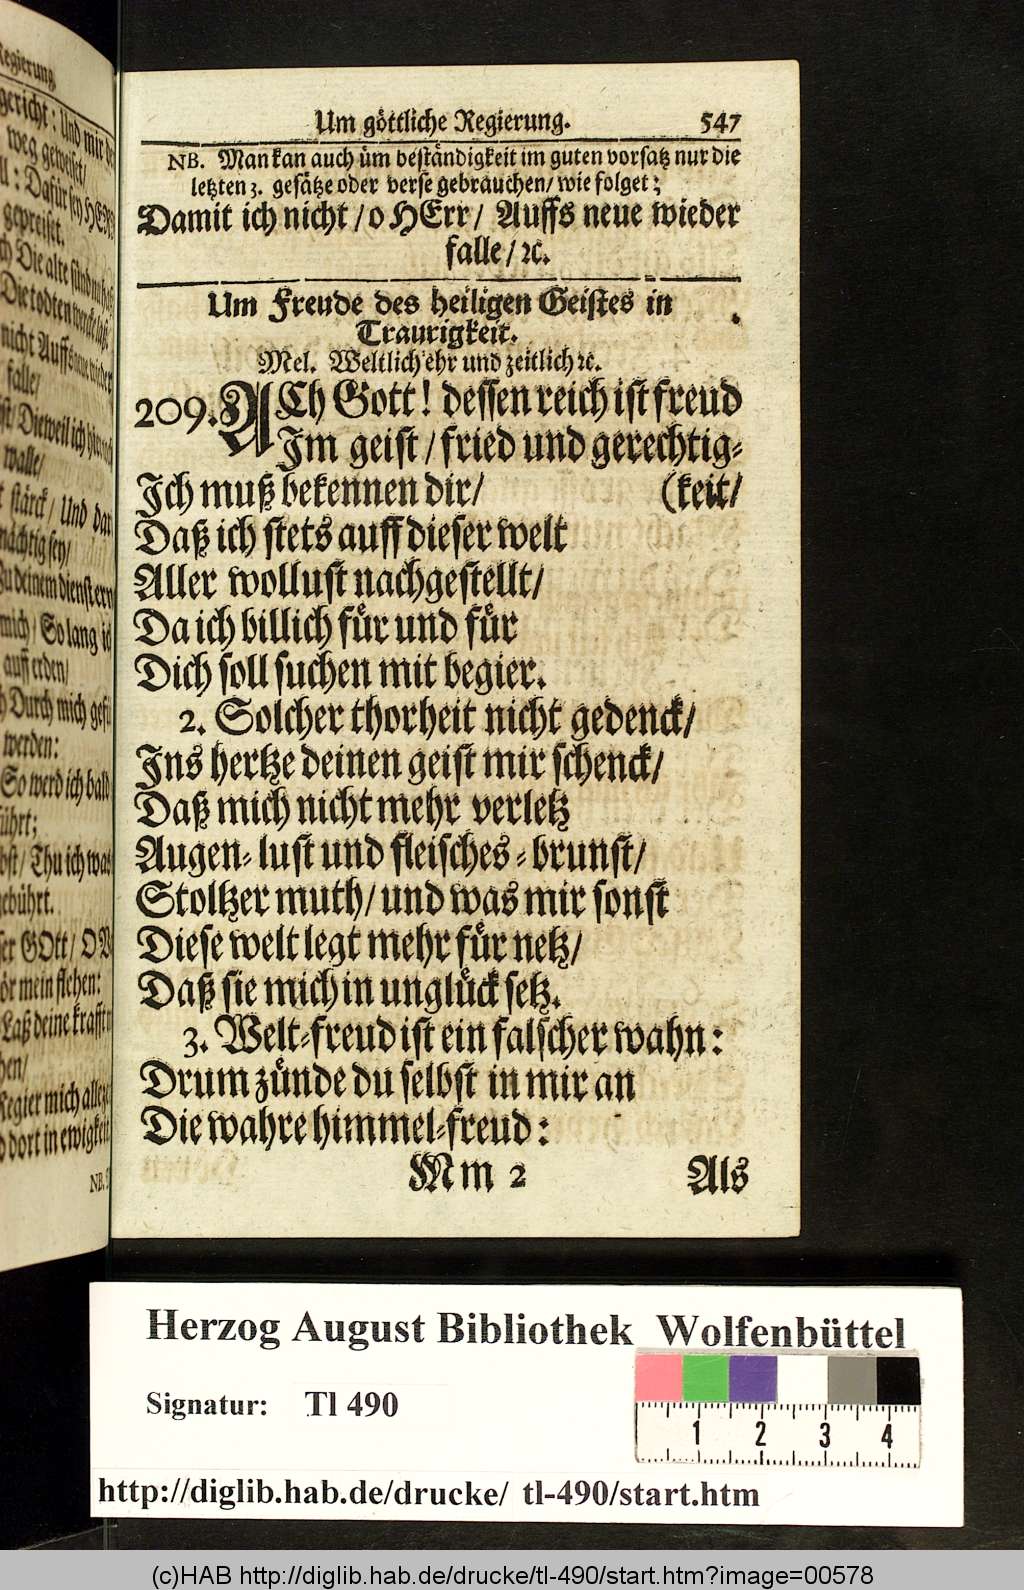 Regierung.
gericht: Und mir
weg geweist/
ll: Dafür sey HERR
gepreiset.
Die alte sünd
Die todten wercke
nicht Auffs neue wieder
falle/
Dieweil ich hier noch
walle/
stärck/ Und dar
mächtig sey/
Zu deinem dienst
mich/ So lang ich
auff erden/
Durch mich
werden:
So werd ich bald
führt;
Thu ich was
gebührt.
GOtt/
mein flehen:
Laß deine krafft
Regier mich
dort in ewigkeit
NB.
Um göttliche Regierung. 547
NB. Man kan auch üm beständigkeit im guten vorsatz nur die
letzten 3. gesätze oder verse gebrauchen/ wie folget:
Damit ich nicht/ o HErr/ Auffs neue wieder
falle/ ꝛc.
Um Freude des heiligen Geistes in
Traurigkeit.
Mel. Weltlich ehr und zeitlich ꝛc.
209. ACh Gott! dessen reich ist freud
Im geist/ fried und gerechtig-
Ich muß bekennen dir/ (keit/
Daß ich stets auff dieser welt
Aller wollust nachgestellt/
Da ich billich für und für
Dich soll suchen mit begier.
2. Solcher thorheit nicht gedenck/
Ins hertze deinen geist mir schenck/
Daß mich nicht mehr verletz
Augen-lust und fleisches-brunst/
Stoltzer muth/ und was mir sonst
Diese welt legt mehr für netz/
Daß sie mich in unglück setz.
3. Welt-freud ist ein falscher wahn:
Drum zünde du selbst in mir an
Die wahre himmel-freud:
Mm 2 Als
Herzog August Bibliothek Wolfenbüttel
Signatur: Tl 490
1 2 3 4
http://diglib.hab.de/drucke/ tl-490/start.htm
(c)HAB http://diglib.hab.de/drucke/tl-490/start.htm?image=00578